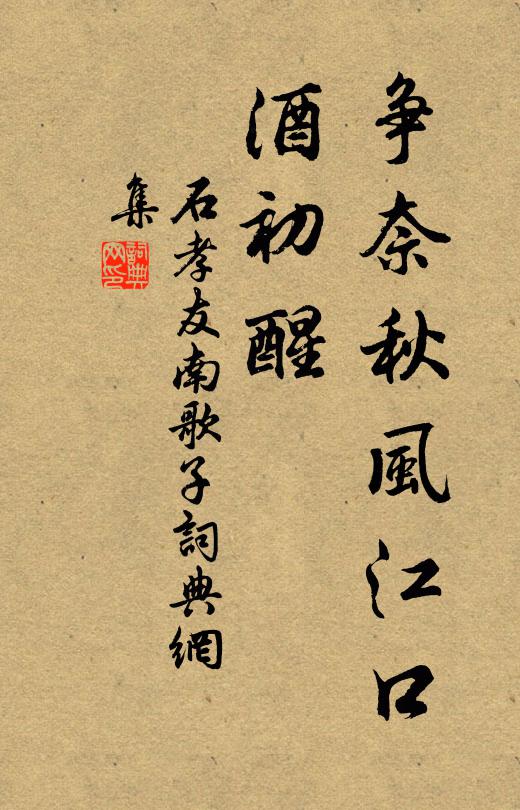 争奈秋風江口
酒初醒
石孝友南歌子詞典網
集
詞典
网印